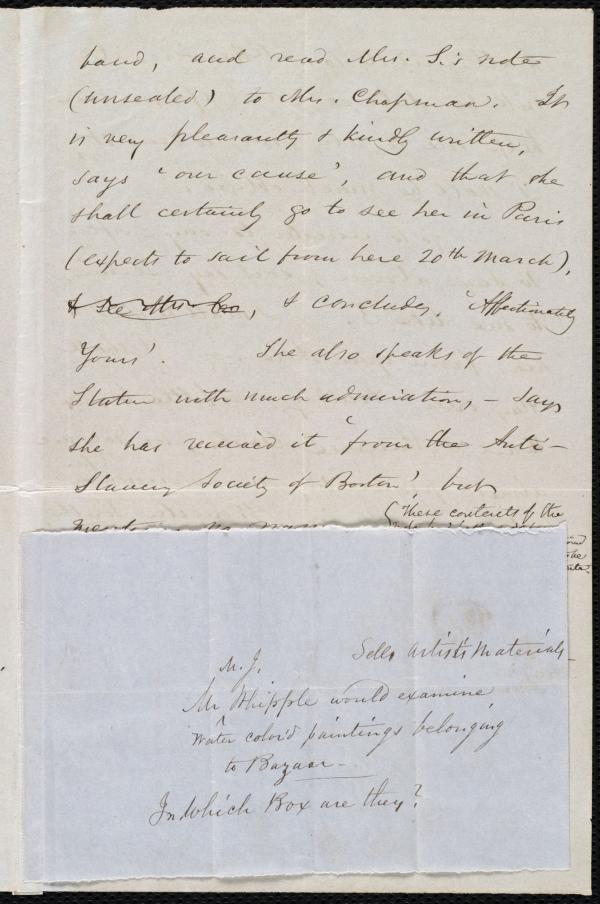 hand, and read Mrs. S.'s note
(unsealed) to Mrs. Chapman. It
is very pleasantly & kindly written,
says 'our cause', and that she
shall certainly go to see her in Paris
(expects to sail from here 20th March),
& see Mrs. , & concludes, 'Affectionately
Yours'. She also speaks of the
Statue with much admiration, - says
she has received it 'from the Anti-
Slavery Society of Boston' but
(These contents of the
Sells Artists Materials -
M. J.
Mr Whipple would examine
Water color'd paintings belonging
to Bazaar -
In which Box are they?